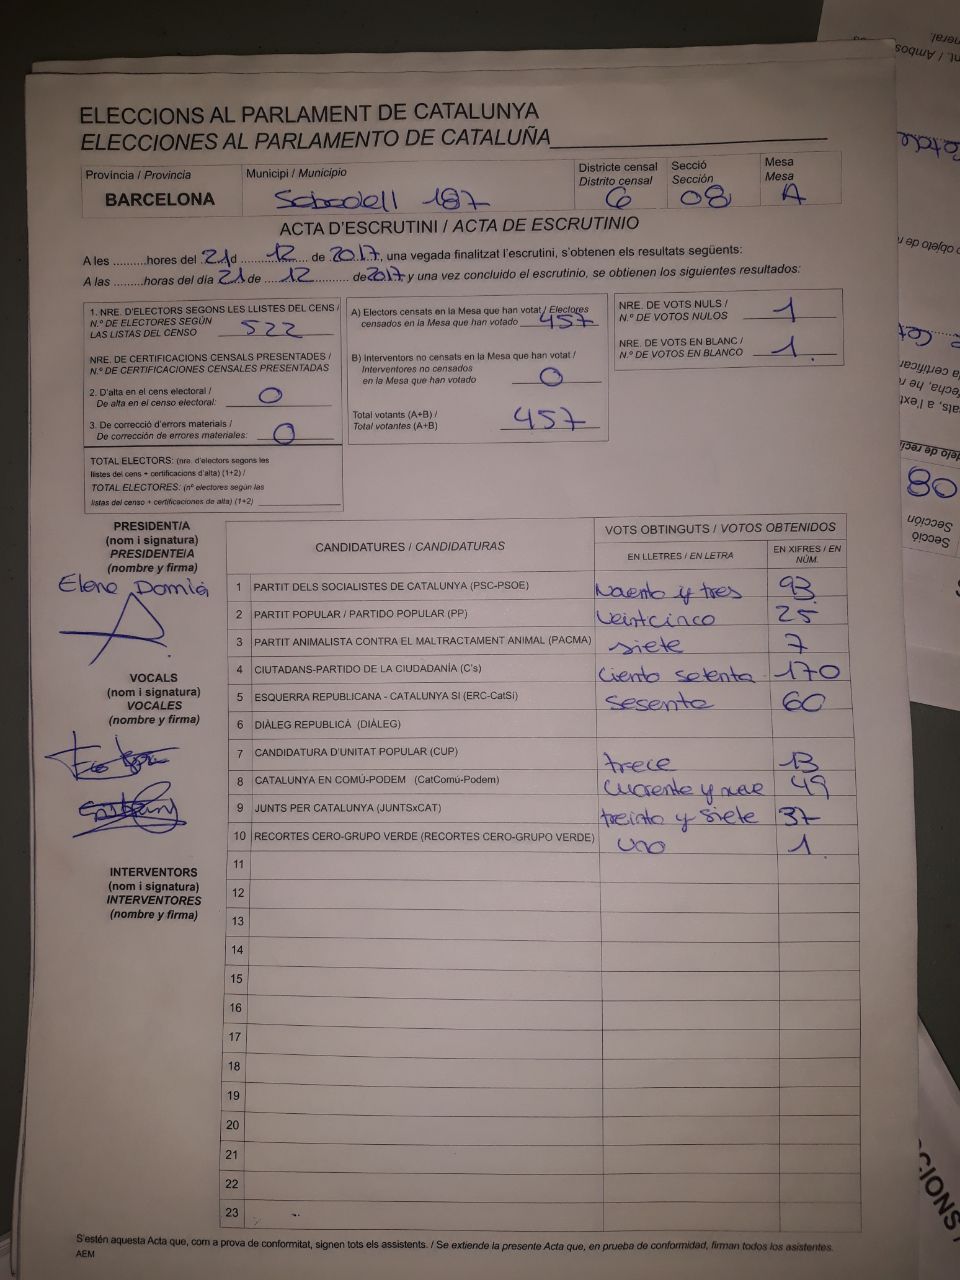 ELECCIONS AL PARLAMENT DE CATALUNYA
ELECCIONES AL PARLAMENTO DE CATALUÑA
Provincia / Provincia
BARCELONA
Municipi / Municipio
Sabadell 187
Districte censal
Distrito censal
6
Secció
Sección
08
Mesa
Mesa
A
ACTA D'ESCRUTINI / ACTA DE ESCRUTINIO
A les .........hores del 21 d 12 de 2017, una vegada finalitzat l'escrutini, s'obtenen els resultats següents:
A las .........horas del día 21 de 12 de 2017 y una vez concluido el escrutinio, se obtienen los siguientes resultados:
1. NRE. D'ELECTORS SEGONS LES LLISTES DEL CENS /
N.º DE ELECTORES SEGÚN
LAS LISTAS DEL CENSO 522
NRE. DE CERTIFICACIONS CENSALS PRESENTADES /
N.º DE CERTIFICACIONES CENSALES PRESENTADAS
2. D'alta en el cens electoral /
De alta en el censo electoral: 0
3. De correcció d'errors materials /
De corrección de errores materiales: 0
TOTAL ELECTORS: (nre. d'electors segons les
llistes del cens + certificacions d'alta) (1+2) /
TOTAL ELECTORES: (nº electores según las
listas del censo + certificaciones de alta) (1+2)
A) Electors censats en la Mesa que han votat / Electores
censados en la Mesa que han votado 457
B) Interventors no censats en la Mesa que han votat /
Interventores no censados
en la Mesa que han votado 0
Total votants (A+B) /
Total votantes (A+B) 457
NRE. DE VOTS NULS /
N.º DE VOTOS NULOS 1
NRE. DE VOTS EN BLANC /
N.º DE VOTOS EN BLANCO 1.
PRESIDENT/A
(nom i signatura)
PRESIDENTE/A
(nombre y firma)
Elena Domió
VOCALS
(nom i signatura)
VOCALES
(nombre y firma)
INTERVENTORS
(nom i signatura)
INTERVENTORES
(nombre y firma)
CANDIDATURES / CANDIDATURAS
VOTS OBTINGUTS / VOTOS OBTENIDOS
EN LLETRES / EN LETRA
EN XIFRES / EN NÚM.
1 PARTIT DELS SOCIALISTES DE CATALUNYA (PSC-PSOE) noventa y tres 93
2 PARTIT POPULAR / PARTIDO POPULAR (PP) veintcinco 25
3 PARTIT ANIMALISTA CONTRA EL MALTRACTAMENT ANIMAL (PACMA) siete 7
4 CIUTADANS-PARTIDO DE LA CIUDADANÍA (C's) ciento setenta 170
5 ESQUERRA REPUBLICANA - CATALUNYA SI (ERC-CatSí) sesenta 60
6 DIÀLEG REPUBLICÀ (DIÀLEG)
7 CANDIDATURA D'UNITAT POPULAR (CUP) trece 13
8 CATALUNYA EN COMÚ-PODEM (CatComú-Podem) cuarenta y nueve 49
9 JUNTS PER CATALUNYA (JUNTSxCAT) treinta y siete 37
10 RECORTES CERO-GRUPO VERDE (RECORTES CERO-GRUPO VERDE) uno 1
11
12
13
14
15
16
17
18
19
20
21
22
23
S'estén aquesta Acta que, com a prova de conformitat, signen tots els assistents. / Se extiende la presente Acta que, en prueba de conformidad, firman todos los asistentes.
AEM
08
Sección
Secció